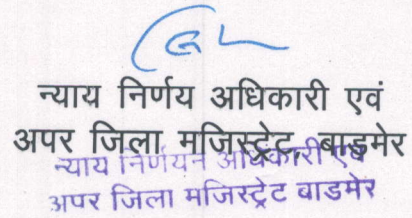 न्याय निर्णय अधिकारी एवं
अपर जिला मजिस्ट्रेट, बाडमेर
न्याय निर्णयन अधिकारी एवं
अपर जिला मजिस्ट्रेट बाडमेर